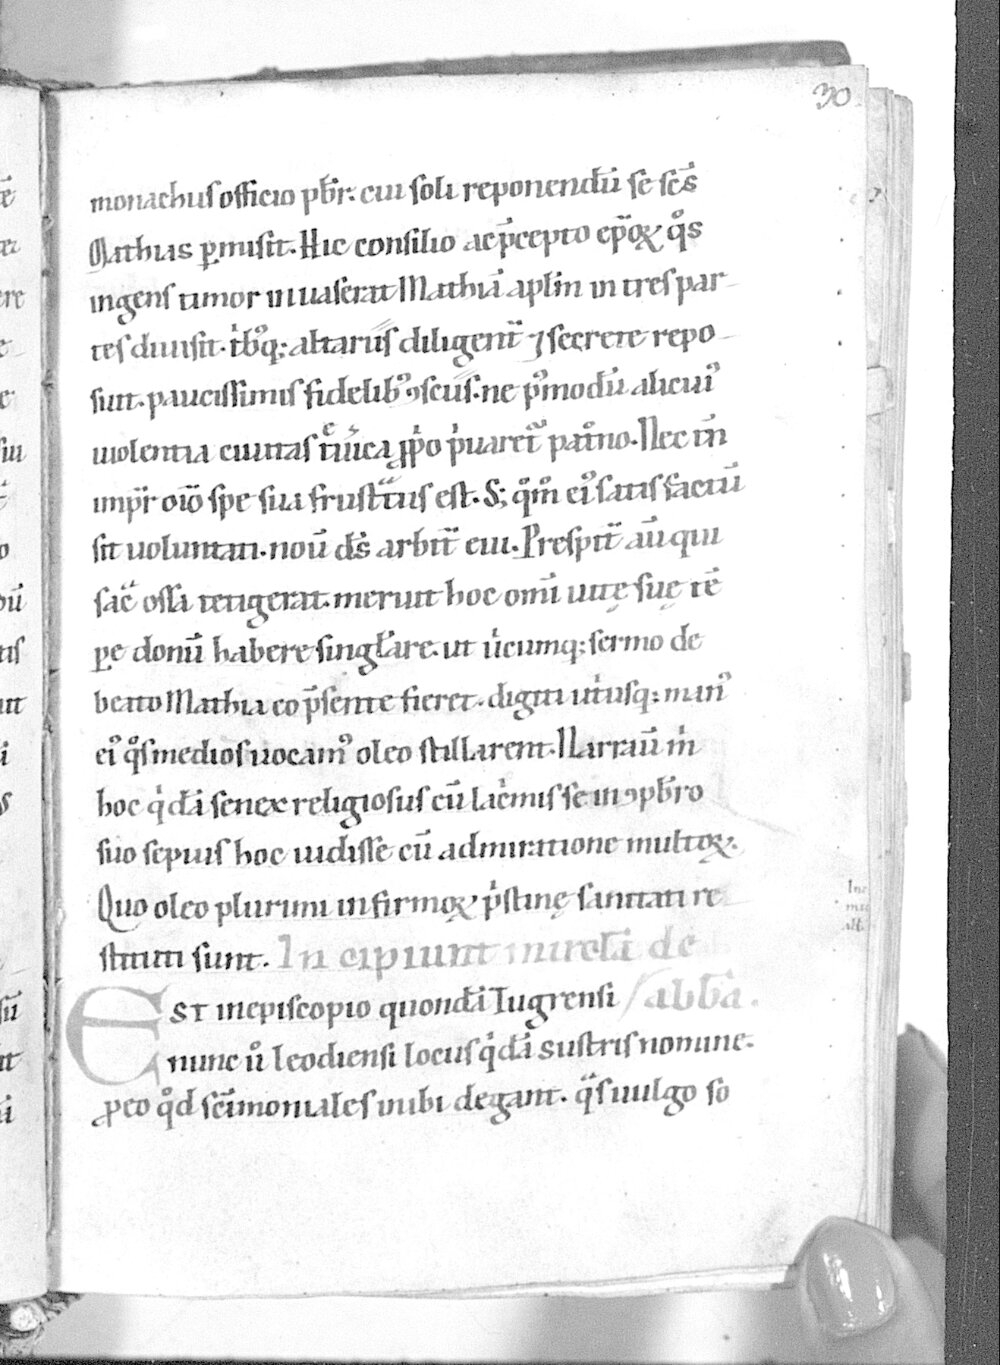 30
monachus officio pbr̄. cui soli reponendū se sc̄s
Mathias ꝑmisit. Hic consilio ac p̄cepto ep̄oꝝ qͦs
ingens timor inuaserat Mathiā aplm̄ in tres par
tes diuisit. tͥbꝰq; altariū diligent̄ ⁊ secrete repo
suit. paucissimis fidelibꝰ ꝯsciis. ne pꝰmodū alicuiꝰ
uiolentia ciuitas pͥuaret patͦno. Nec in̄
oīo spe sua frustᵃtus est. S; qm̄ eiꝰ satis factū
sit uoluntati. nouit ds̄ arbit̄ cui. Presbit̄ aū qui
sac̄ ossa tetigerat. meruit hoc om̄i uitę suę tē
ꝑe donū habere singłare. ut uͥcumq; sermo de
beato Mathia eo p̄sente fieret. digiti utͥusq; manꝰ
eiꝰ qͦs medios uocamꝰ oleo stillarent. Narrauit m̄
hoc qͥdā senex religiosus cū lacͥmis se in ꝯpbr̄o
suo sepius hoc uidisse cū admiratione multoꝝ.
Quo oleo plurimi infirmoꝝ pͥstinę sanitati re
stituti sunt. Incipiunt miracła de
Est in episcopio quondā Tugrensi / abbā.
nunc uͦ leodiensi locus qͥdā sustris nomine.
ꝓeo qͦd scīmoniales inibi degant. qᵃs uulgo so